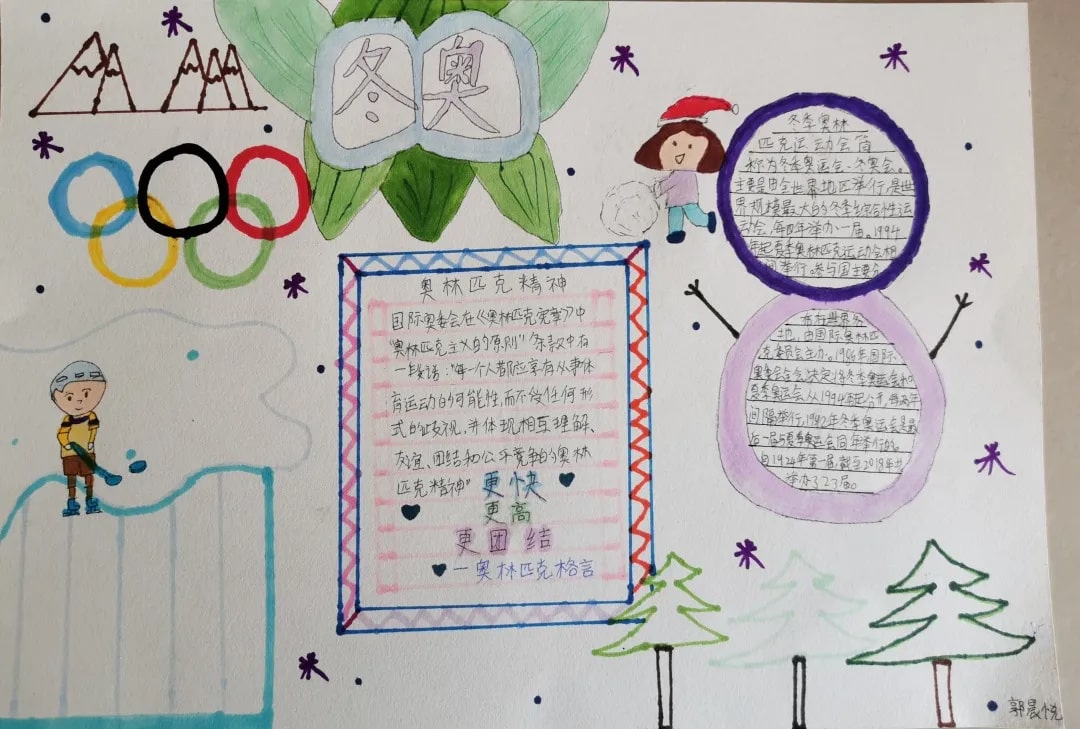 冬奥
奥林匹克精神
国际奥委会在《奥林匹克宪章》中
"奥林匹克主义的原则"条款中有
一段话："每一个人都应享有从事体
育运动的可能性，而不受任何形
式的歧视，并体现相互理解、
友谊、团结和公平竞争的奥林
匹克精神"
更快
更高
更团结
一奥林匹克格言
冬季奥林
匹克运动会简
称为冬季奥运会、冬奥会。
主要是由全世界地区举行，是世
界规模最大的冬季综合性运
动会，每四年举办一届。1994
年起夏季奥林匹克运动会相
间举行。参与国主要分
布在世界各
地，由国际奥林匹
克委员会主办。1986年国际
奥委会全会决定将冬季奥运会和
夏季奥运会从1994年起分开，每两年
间隔举行，1992年冬季奥运会是最
后一届与夏季奥运会同年举行的。
自1924年第一届，截至2018年共
举办了23届。
郭晨悦